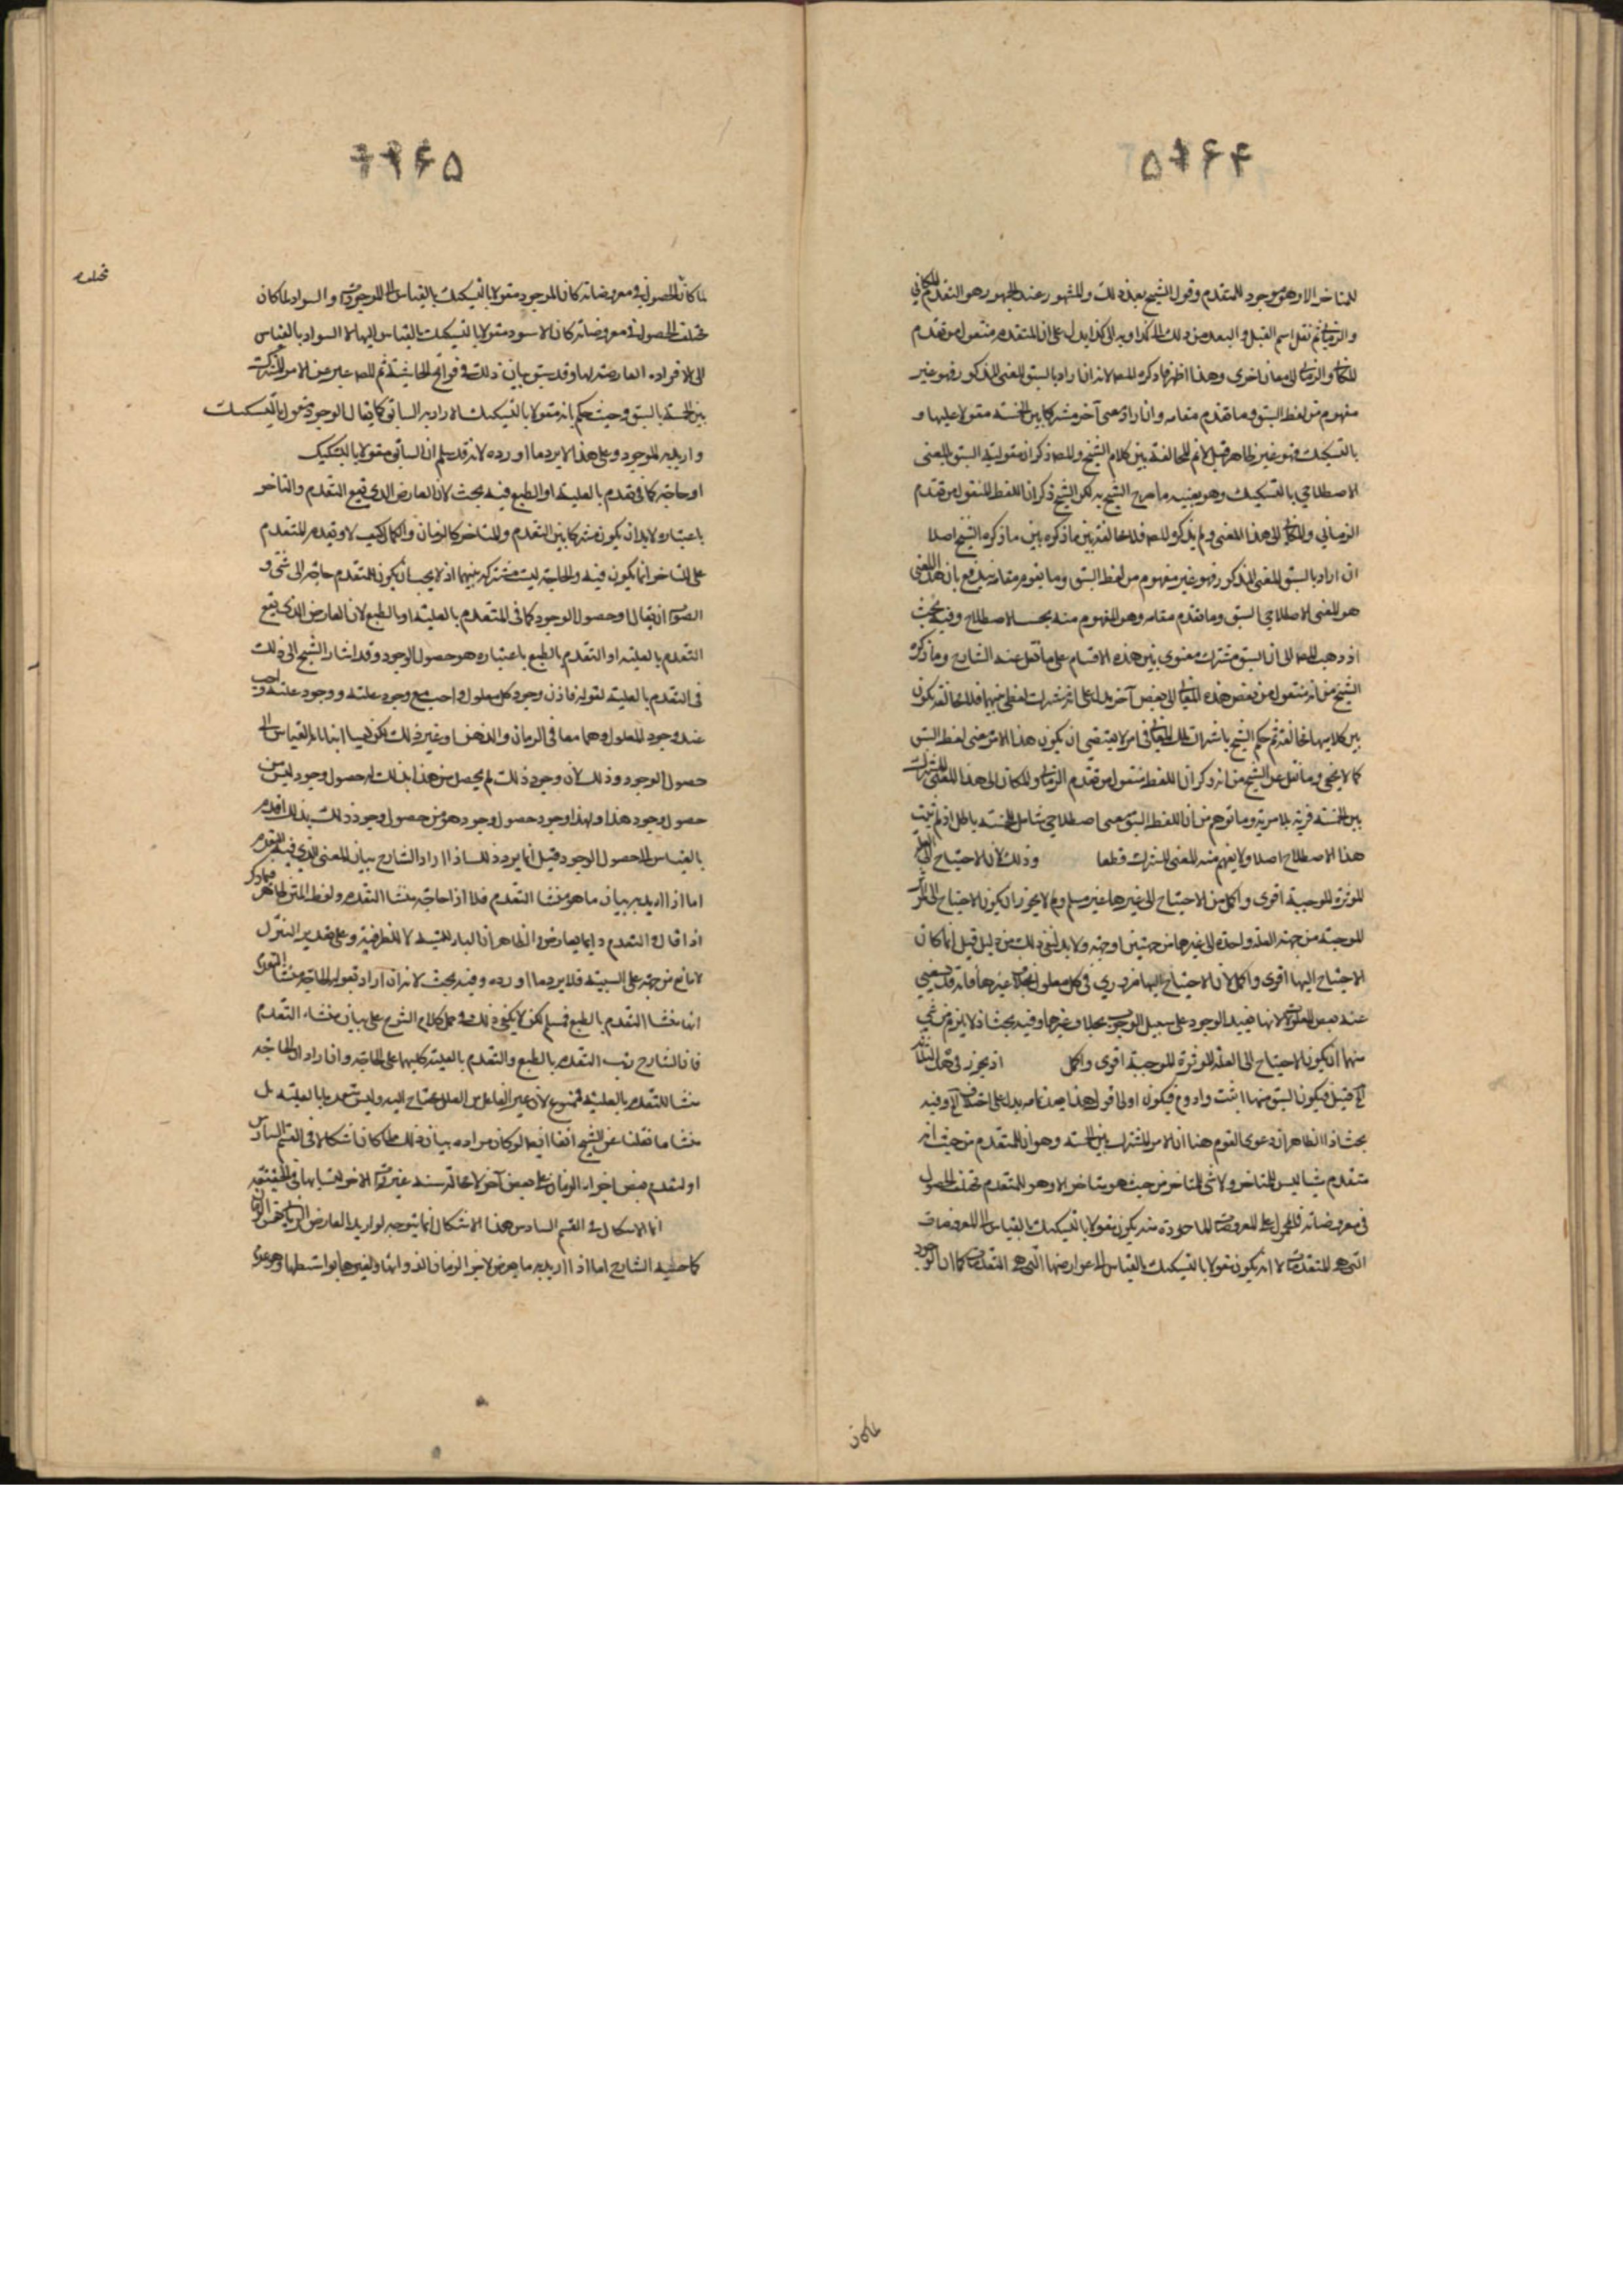 للمتاخر الا وهو موجود للمتقدم وقول الشيخ بعد ذلك والمشهور عند الجمهور هو التقدم المكاني
والزماني ثم نقل اسم القبل والبعد من ذلك الى كذا وبه الى كذا يدل على ان المتقدم منقول من تقدم
المكان والزمان الى معان اخرى وهذا اظهر مما ذكره المص لانه ان اراد بالسبق المعنى المذكور فهو غير
مفهوم من لفظ السبق وما تقدم مقامه وان اراد معنى آخر مشتركا بين الخمسة مقولا عليها و
بالتشكيك فهو غير ظاهر قيل لا نم المخالفة بين كلام الشيخ والمص ذكر ان مقولية السبق بالمعنى
الاصطلاحي بالتشكيك وهو بعينه ما صرح الشيخ به لكن الشيخ ذكر ان اللفظ المنقول من تقدم
الزماني والمكاني الى هذا المعنى ولم يذكره المص فلا مخالفة بين ما ذكره بين ما ذكره الشيخ اصلا
ان اراد بالسبق المعنى المذكور فهو غير مفهوم من لفظ السبق وما يقوم مقامه يدفع بان هذا المعنى
هو المعنى الاصطلاحي السبق وما تقدم مقامه وهو المفهوم منه بحسب الاصطلاح وفيه بحث
اذ ذهب المص الى ان السبق مشترك معنوي بين هذه الاقسام على ما نقل عند الشارح وما ذكره
الشيخ من انه منقول من بعض هذه المعاني الى بعض آخر يدل على انه مشترك لفظي بينهما فلا مخالفة يكون
بين كلاميهما مخالفة ثم حكم الشيخ باشتراك تلك المعاني في امر لا يقتضي ان يكون هذا الامر معنى لفظ السبق
كما لا يخفى وما نقل عن الشيخ من انه ذكر ان اللفظ منقول من تقدم الزمان والمكان الى هذا المعنى المشترك
بين الخمسة فرية بلا مرية وما توهم من ان اللفظ السبق معنى اصطلاحي شامل للخمسة باطل اذ لم يثبت
هذا الاصطلاح اصلا ولا يفهم منه المعنى المشترك قطعا وذلك لان الاحتياج الى العلة
المؤثرة الموجبة اقوى واكمل من الاحتياج الى غيرها غير مسلم ولم لا يجوز ان يكون الاحتياج الى المؤثر
الموجبة من جهة العلة واحدة الى غيرها من جهتين او جهة ولا بد لنفي ذلك من دليل قيل انما كان
الاحتياج اليها اقوى واكمل لان الاحتياج اليها ضروري في كل معلول بخلاف غيرها فانه قد يستغني
عنه بعض المعلولات لانها يفيد الوجود على سبيل الوجوب بخلاف غيرها وفيه بحث اذ لا يلزم من شيء
منهما ان يكون الاحتياج الى العلة المؤثرة الموجبة اقوى واكمل اذ يجوز
بحث اذ الظاهر ان دعوى القوم هنا ان الامر المشترك بين الخمسة وهو ان المتقدم من حيث انه
متقدم شيئا ليس للمتاخر ولا شيء للمتاخر من حيث هو متاخر الا وهو للمتقدم مختلف الحصول
في معروضاته فالمحمول على المعروضات الماخوذة منه يكون مقولا بالتشكيك بالقياس الى المعروضات
التي هي المتقدمات لا انه يكون مقولا بالتشكيك بالقياس الى عوارضها التي هي التقدمات كما ان الوجود
لما كان
لما كان الحصول في معروضاته كان الموجود مقولا بالتشكيك بالقياس الى الموجودات والسواد لما كان
مختلف الحصول في معروضاته كان الاسود مقولا بالتشكيك بالقياس اليها لا السواد بالقياس
الى الافراده العارضة لها وقد سبق بيان ذلك في فواتح الحاشية ثم المص عبر عن الامر المشترك
بين الخمسة بالسبق وحيث حكم بانه مقولا بالتشكيك اراد به السابق كما يقال الوجود مقول بالتشكيك
واريد به الموجود وعلى هذا لا يرد ما اورده لانه قد سلم ان السابق مقولا بالتشكيك
او حاجة كما في تقدم بالعلية او الطبع فيه بحث لان العارض الذي يقع التقدم والتاخر
باعتباره لا بد ان يكون مشتركا بين المتقدم والمتاخر كالزمان والكمال كيف لا وتقدم المتقدم
على المتاخر انما يكون فيه والحاجة ليست مشتركة بينهما اذ لا يجب ان يكون للمتقدم حاجة الى شيء و
الصواب ان يقال او حصول الوجود كما في المتقدم بالعلية او بالطبع لان العارض الذي يقع
التقدم بالعلية او التقدم بالطبع باعتباره هو حصول الوجود وقد اشار الشيخ الى ذلك
في التقدم بالعلية لقوله فاذن وجود كل معلول واجب مع وجود علته ووجود علته واجب
عنده وجود المعلول وهما معا في الزمان والذهن وغير ذلك لكن ليسا معا بالقياس الى
حصول الوجود وذلك لان وجود ذلك لم يحصل من هذا بذلك له حصول وجود ليس من
حصول وجود هذا ولهذا وجود حصول وجود هو من حصول وجود ذلك بذلك اقدم
بالقياس الى حصول الوجود قيل انما يرد ذلك اذا اراد الشارح بيان المعنى الذي فيه التقدم
اما اذا اريد به بيان ما هو منشا التقدم فلا اذ الحاجة منشا التقدم ولفظ المتن ظاهر فيما ذكر
لا مانع من حمله على السببية فلا يرد ما اورده وفيه بحث لانه ان اراد بقوله الحاجة منشا التقدم
انها منشا التقدم بالطبع فمسلم لكن لا يكفي ذلك في حمل كلام الشرح على بيان منشاء التقدم
فان الشارح رتب التقدم بالطبع والتقدم بالعلية كليهما على الحاجة وان اراد ان الحاجة
منشا للتقدم بالعلية فممنوع لان غير الفاعل من العلل محتاج اليه وليس متقدما بالعلية بل
منشا ما نقلنا عن الشيخ آنفا ايضا لو كان مراده بيان ذلك لما كان اشكالا في القسم السادس
او لتقدم بعض اجزاء الزمان على بعض آخر لا محالة
انما الاشكال في القسم السادس هذا الاشكال انما يتوجه لو اريد العارض
كما حمله الشارح اما اذا اريد به ما يعرض لاجزاء الزمان لذواتها ولغيرها بواسطتها